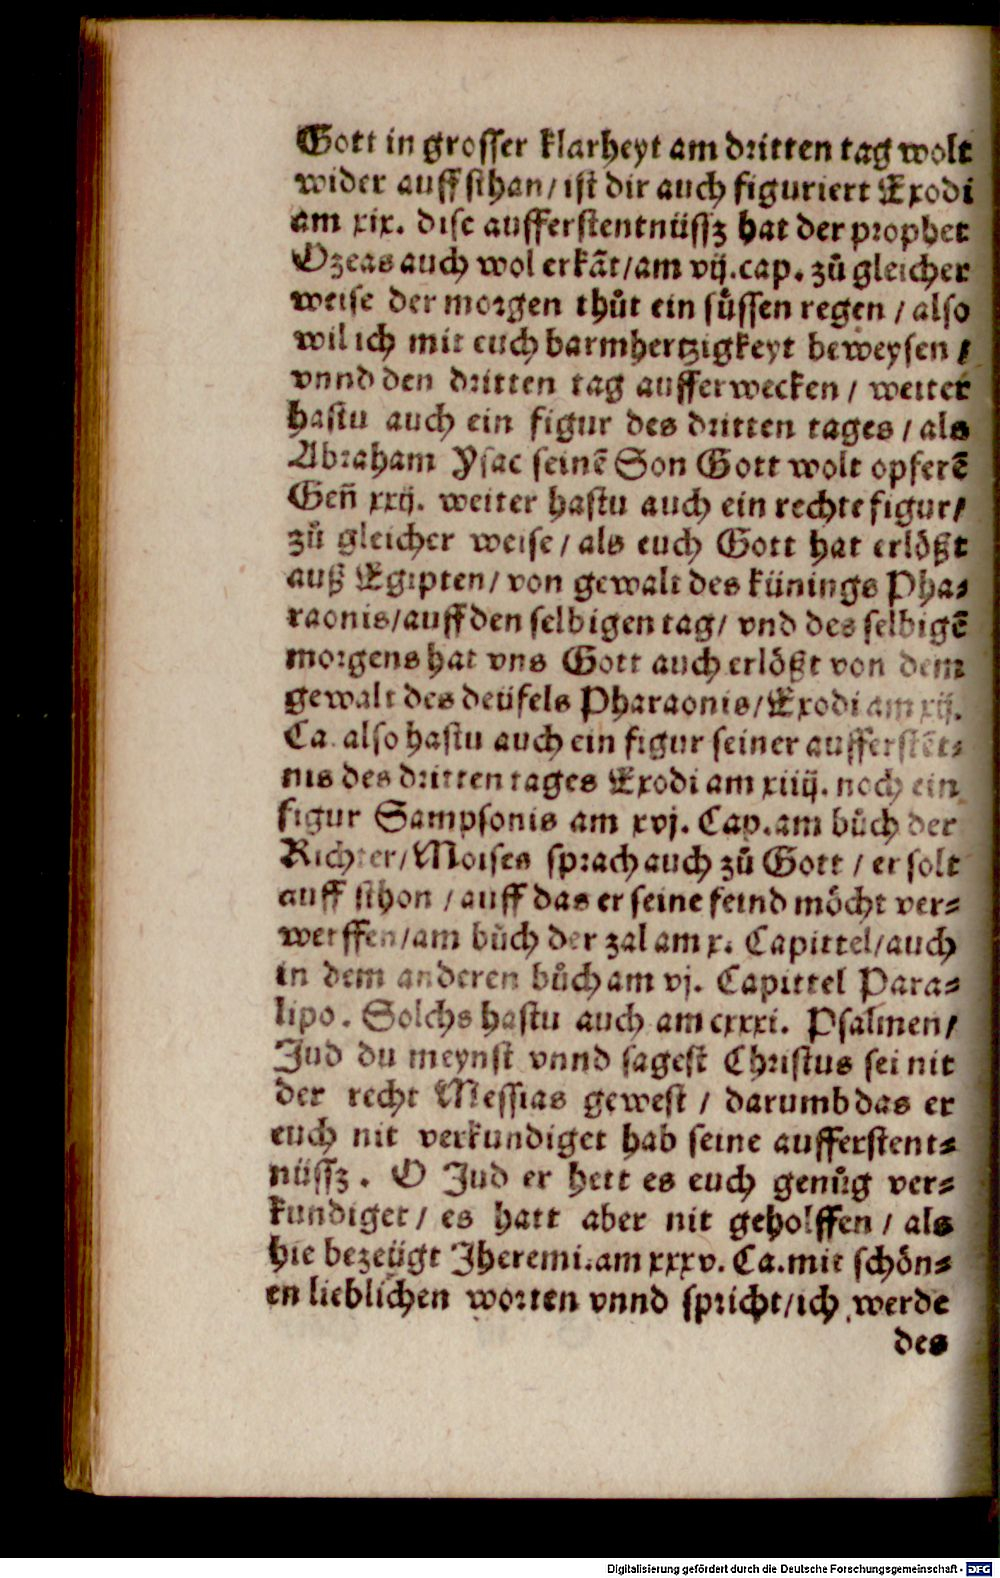 Gott in grosser klarheyt am dritten tag wolt
wider auff sthan / ist dir auch figuriert Exodi
am xix. dise aufferstentnüssz hat der prophet
Ozeas auch wol erkãt / am vij. cap. zů gleicher
weise der morgen thůt ein sůssen regen / also
wil ich mit euch barmhertzigkeyt beweysen /
vnnd den dritten tag aufferwecken / weiter
hastu auch ein figur des dritten tages / als
Abraham Ysac seinẽ Son Gott wolt opferẽ
Geñ xxij. weiter hastu auch ein rechte figur /
zů gleicher weise / als euch Gott hat erlößt
auß Egipten / von gewalt des künings Pha⸗
raonis / auff den selbigen tag / vnd des selbigẽ
morgens hat vns Gott auch erlößt von dem
gewalt des deüfels Pharaonis / Exodi am xij.
Ca. also hastu auch ein figur seiner aufferstẽt⸗
nis des dritten tages Exodi am xiiij. noch ein
figur Sampsonis am xvj. Cap. am bůch der
Richter / Moises sprach auch zů Gott / er solt
auff sthon / auff das er seine feind möcht ver⸗
werffen / am bůch der zal am x. Capittel / auch
in dem anderen bůch am vj. Capittel Para⸗
lipo. Solchs hastu auch am cxxxi. Psalmen /
Jud du meynst vnnd sagest Christus sei nit
der recht Messias gewest / darumb das er
euch nit verkundiget hab seine aufferstent⸗
nüssz. O Jud er hett es euch genůg ver⸗
kundiget / es hatt aber nit geholffen / als
hie bezeügt Jheremi. am xxxv. Ca. mit schön⸗
en lieblichen worten vnnd spricht / ich werde
des
Digitalisierung gefördert durch die Deutsche Forschungsgemeinschaft - DFG